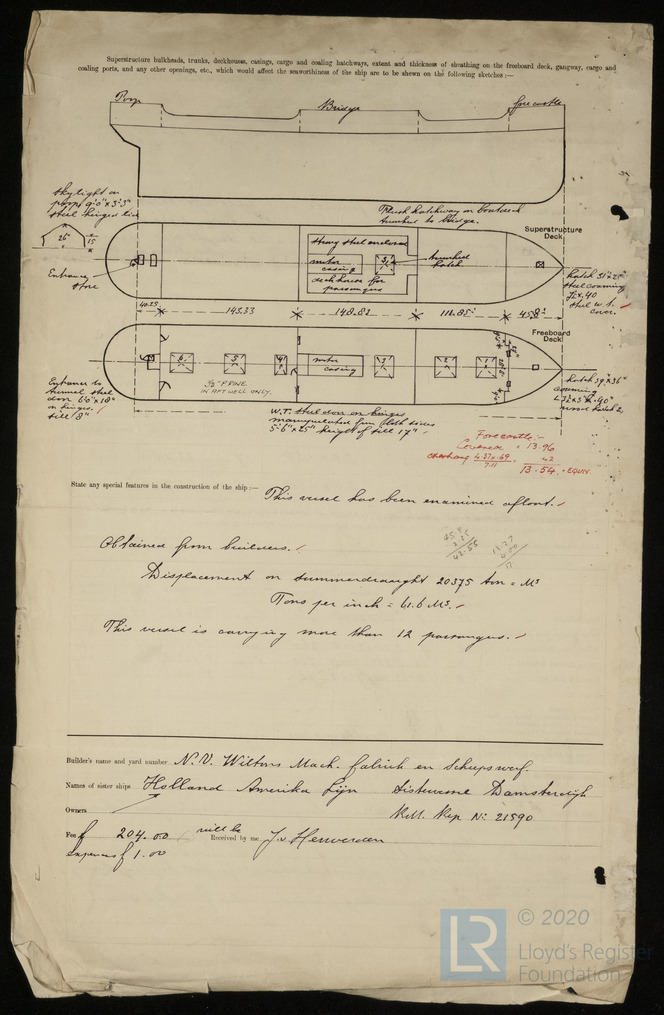 Superstructure bulkheads, trunks, deckhouses, casings, cargo and coaling hatchways, extent and thickness of sheathing on the freeboard deck, gangway, cargo and
coaling ports, and any other openings, etc., which would affect the seaworthiness of the ship are to be shewn on the following sketches :—
Poop
Bridge
forecastle
Skylight on
poop 9'0" x 3'3"
steel hinged lid
26"
15
Flush hatchway on boatdeck
trunked to bridge.
Superstructure
Deck
strong steel enclosed
motor
casing
3
trunked
hatch
deckhouse for
passengers
Entrance
store
hatch 31" x 25"
steel coaming
cover.
40.23
143.33
148.82
45.8
Freeboard
Deck
6
5
4
motor
casing
3
2
1
½" PINE
IN AFT WELL ONLY.
Entrance to
tunnel steel
door 6'0" x 18"
on hinges.
sill 8"
hatch 39" x 36"
coaming
W.T. steel door on hinges
manipulated from both sides
5'6" x 25" height of sill 17"
Forecastle :-
Covered = 13.96
Overhang
.42
13.54 = EQUIV.
State any special features in the construction of the ship :—
This vessel has been examined afloat.
45.8
42.55
Obtained from builders.
Displacement on summerdraught 20375 ton = M³
Tons per inch = 61.6 M³.
This vessel is carrying more than 12 passengers.
Builder's name and yard number N.V. Wiltons Mach. fabriek en Scheepswerf.
Names of sister ships
Holland Amerika Lijn
Damsterdijk
Owners
Rep. No 21590
Fee f 204.00
will be
Received by me
expenses f 1.00
© 2020
LR
Lloyd's Register
Foundation